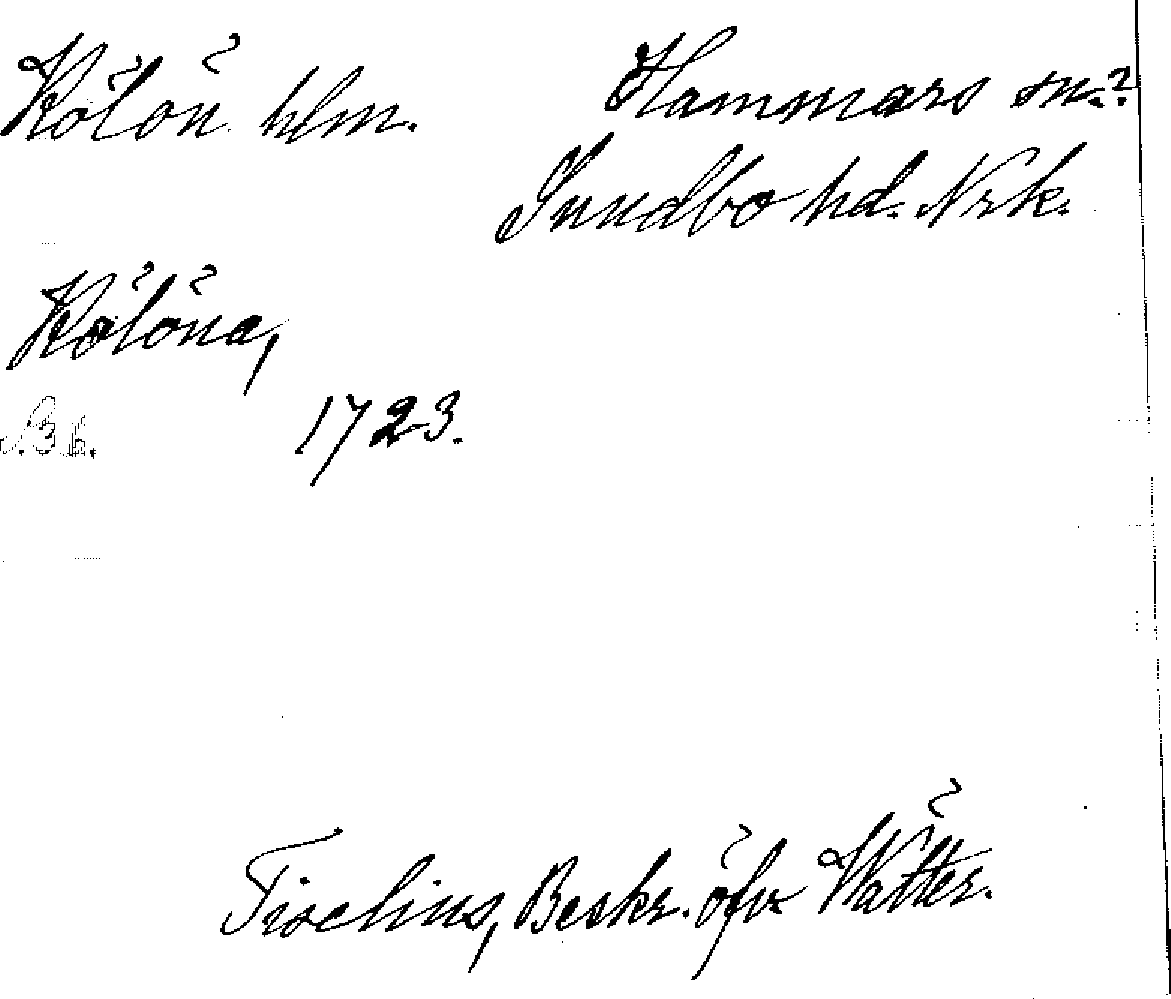 Kölön hlm. Hammars sn.?
Sundbo hd. Nrk.
Kölöna,
1723.
Tiselius, Beskr. öfv. Wätter.